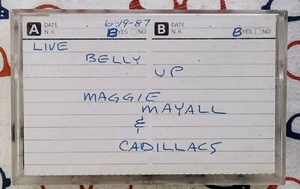 A DATE 6-19-87 B DATE
N.R. B YES NO N.R. B YES NO
LIVE
BELLY
UP
MAGGIE
MAYALL
&
CADILLACS